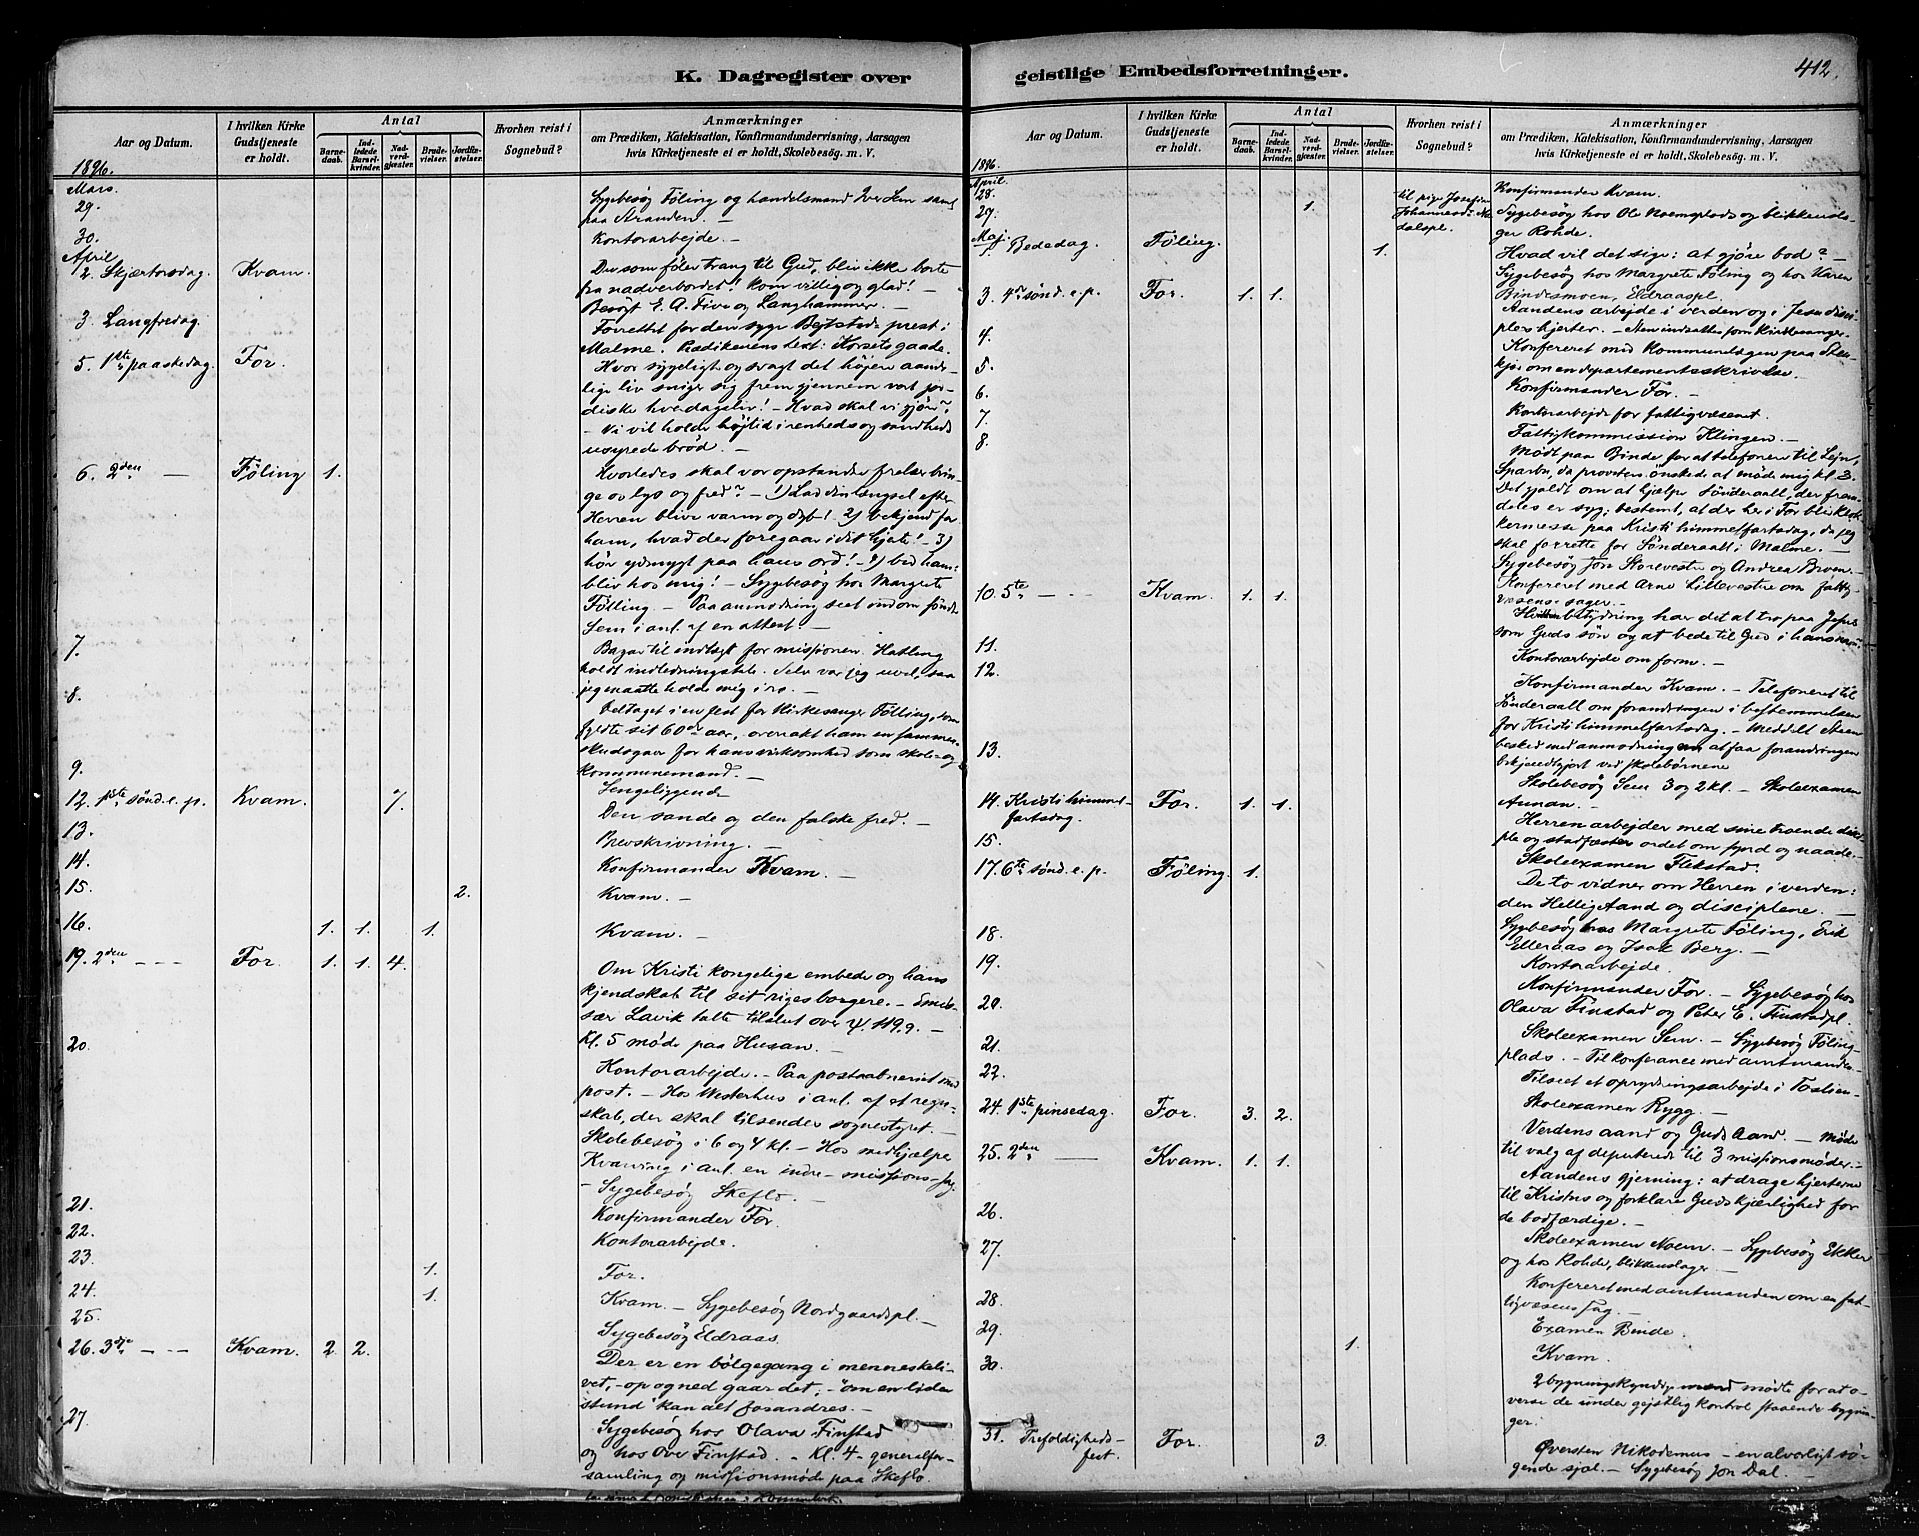 K. Dagregister over
Aar og Datum.
I hvilken Kirke
Gudstjeneste
er holdt.
Antal
Barne-
daab.
Ind-
ledede
Barsel-
kvinder.
Nad-
verd-
gjæster.
Brude-
vielser.
Jordfæ-
stelser.
Hvorhen reist i
Sognebud?
Anmærkninger
om Prædiken, Katekisation, Konfirmandundervisning, Aarsagen
hvis Kirketjeneste ei er holdt, Skolebesög. m. V.
1896.
Mars.
29.
Sygebesög Föling og handelsmand Iver Lein samt
paa Stranden. —
30.
Kontorarbejde. —
April
2. Skjærtorsdag. Kvam.
Du som föler trang til Gud, bliv ikke borte
fra nadverbordet! Kom villig og glad! —
Besögt E. A. Five og Langhammer. —
3. Langfredag.
Forrettet for den syge Bejtstad-prest i
Malme. Prædikenens text: Korsets gaade.
5. 1ste paaskedag. For.
Hvor sygeligt og svagt det höjere aande-
lige liv sniger sig frem gjennem vort jor-
diske hverdagsliv! — Hvad skal vi gjöre?
— Vi vil holde höjtid i renheds og sandheds
usyrede bröd. —
6. 2den — Föling 1.
Hvorledes skal vor opstandne frelser brin-
ge os lys og fred? — 1) Lad din længsel efter
Herren blive varm og dyb! 2) bekjend for
ham, hvad der foregaar i dit hjerte! — 3)
hör ydmygt paa hans ord! — 4) bed ham:
bliv hos mig! — Sygebesög hos Margrete
Fölling — Paa anmodning set indom
Sem i anl. af en attest. —
7.
Bazar til indtægt for missionen. Hatling
holdt indledningstale. Selv var jeg uvel, saa
jeg maatte holde mig i ro. —
8.
Deltaget i en fest for Kirkesanger Fölling, som
fyldte sit 60de aar, overrakt ham en sammen-
skudsgave for hans virksomhed som skole- og
kommunemand. —
9.
Sengeliggende
12. 1ste sönd. e. p. Kvam. 7.
Den sande og den falske fred. —
13.
Brevskrivning. —
14.
Konfirmander Kvam. —
15. 2.
Kvam. —
16. 1. 1. 1.
Kvam. —
19. 2den — — For. 1. 1. 4.
Om Kristi kongelige embede og hans
kjendskab til sit riges borgere. — Emis-
sær Lavik talte tilslut over ψ. 119,9. —
Kl. 5 möde paa Husan. —
20.
Kontorarbejde. — Paa postaabneriet med
post. — Hos Westerhus i anl. af et regn-
skab, der skal tilsendes sognestyret. —
Skolebesög i 6 og 4 kl. — Hos medhjælper
Kvarving i anl. en indre-missions-sag.
— Sygebesög Skeflo. —
21.
Konfirmander For.
22.
Kontorarbejde.
23. 1.
For.
24. 1.
Kvam. — Sygebesög Nordgaardspl. —
25.
Sygebesög Eldraas.
26. 3die — — Kvam. 2. 2.
Der er en bölgegang i menneskeli-
vet, — op og ned gaar det; — "om en liden
stund" kan alt forandres. —
27.
Sygebesög hos Olava Finstad
og hos Ove Finstad. — Kl. 4 — generalfor-
samling og missionsmöde paa Skeflo.
geistlige Embedsforretninger.
412.
Aar og Datum.
I hvilken Kirke
Gudstjeneste
er holdt.
Antal
Barne-
daab.
Ind-
ledede
Barsel-
kvinder.
Nad-
verd-
gjæster.
Brude-
vielser.
Jordfæ-
stelser.
Hvorhen reist i
Sognebud?
Anmærkninger
om Prædiken, Katekisation, Konfirmandundervisning, Aarsagen
hvis Kirketjeneste ei er holdt, Skolebesög m. V.
1896.
April.
28.
Konfirmander Kvam.
29. 1. til pige Josefine
Johannesd.
dalspl.
Sygebesög hos Ole Noemsplads og blikkensla-
ger Rohde.
Maj.
1. Bededag. Föling. 1.
Hvad vil det sige: at gjöre bod? —
Sygebesög hos Margrete Föling og hos Karen
Bindesmoen, Eldraaspl.
3. 4de sönd. e. p. For. 1. 1.
Aandens arbejde i verden og i Jesu disci-
ples hjerter. — indsattes som kirkesanger.
4.
Konfereret med Kommunelægen paa Sten-
kjær om en departementsskrivelse.
5.
Konfirmander For. —
6.
Kontorarbejde for fattigvæsenet.
7.
Fattigkommission Klingen. —
8.
Mödt paa Binde for at telefonere til Lejn,
Sparbu, da provsten önskede at möde mig kl. 3.
Det gjaldt om at hjælpe Sönderaall, der frem-
deles er syg; bestemt, at der her i For blir
kermesse paa Kristi himmelfartsdag, da jeg
skal forrette for Sönderaall i Malme. —
Sygebesög Jon Storevestre og Andrea Broem.
Konfereret med Arne Lillevestre om fattig-
væsens-sager. —
10. 5te — — Kvam. 1. 1.
Hvilken betydning har det at tro paa Jesus
som Guds sön og at bede til Gud i hans navn?
11.
Kontorarbejde om form. —
12.
Konfirmander Kvam. — Telefoneret til
Sönderaall om forandringen i bestemmelsen
for Kristi himmelfartsdag. — Meddelt Steen
besked med anmodning om at faa forandringen
bekjendtgjort ved skolebörnene
13.
Skolebesög Sem 3 og 2 kl. — Skoleexamen
Annan. —
14. Kristi himmel-
fartsdag. For. 1. 1.
Herren arbejder med sine troende disi-
ple og stadfæster ordet om synd og naade. —
15.
Skoleexamen Flekstad.
17. 6te sönd. e. p. Föling. 1.
De to vidner om Herren i verden:
den Hellig Aand og disciplene. —
18.
Sygebesög hos Margrete Föling, Erik
Elleraas og Isak Berg. —
19.
Kontorarbejde.
20.
Konfirmander For. — Sygebesög hos
Olava Finstad og Peter E. Finstadpl.
21.
Skoleexamen Sem. — Sygebesög Föling-
plads. — Til konferance med amtmanden.
22.
Tilset et oprydningsarbejde i
Skoleexamen Rygg. —
24. 1ste pinsedag. For. 3. 2.
Verdens aand og Guds Aand. — Möde
til valg af deputerede til 3 missionsmöder. —
25. 2den — Kvam. 1. 1.
Aandens gjerning: at drage hjerterne
til Kristus og forklare Guds kjærlighed for
de bodfærdige. —
26.
Skoleexamen Noem. — Sygebesög Ekker
og hos Rohde, blikkenslager. —
27.
Konfereret med amtmanden om en fat-
tigvæsens sag. —
28.
Examen Binde.
29. 1.
Kvam.
30.
2 bygningskyndige mænd mödte for at o-
verse de under gejstlig kontrol staaende bygnin-
ger.
31. Trefoldigheds-
fest. For. 3.
Översten Nikodemus — en alvorligt sö-
gende sjæl. — Sygebesög Jon Dal. —